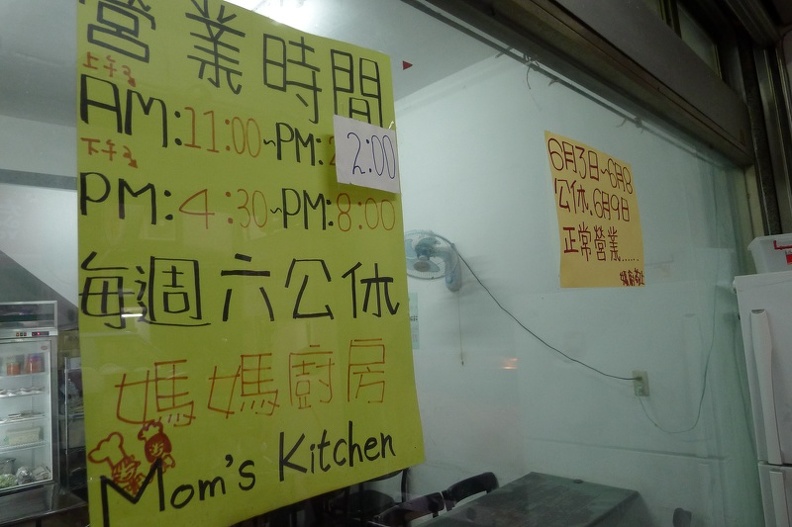 營業時間
上午
AM:11:00~PM:2:00
下午
PM:4:30~PM:8:00
每週六公休
媽媽廚房
Mom's Kitchen
6月3日~6月8
公休,6月9日
正常營業......